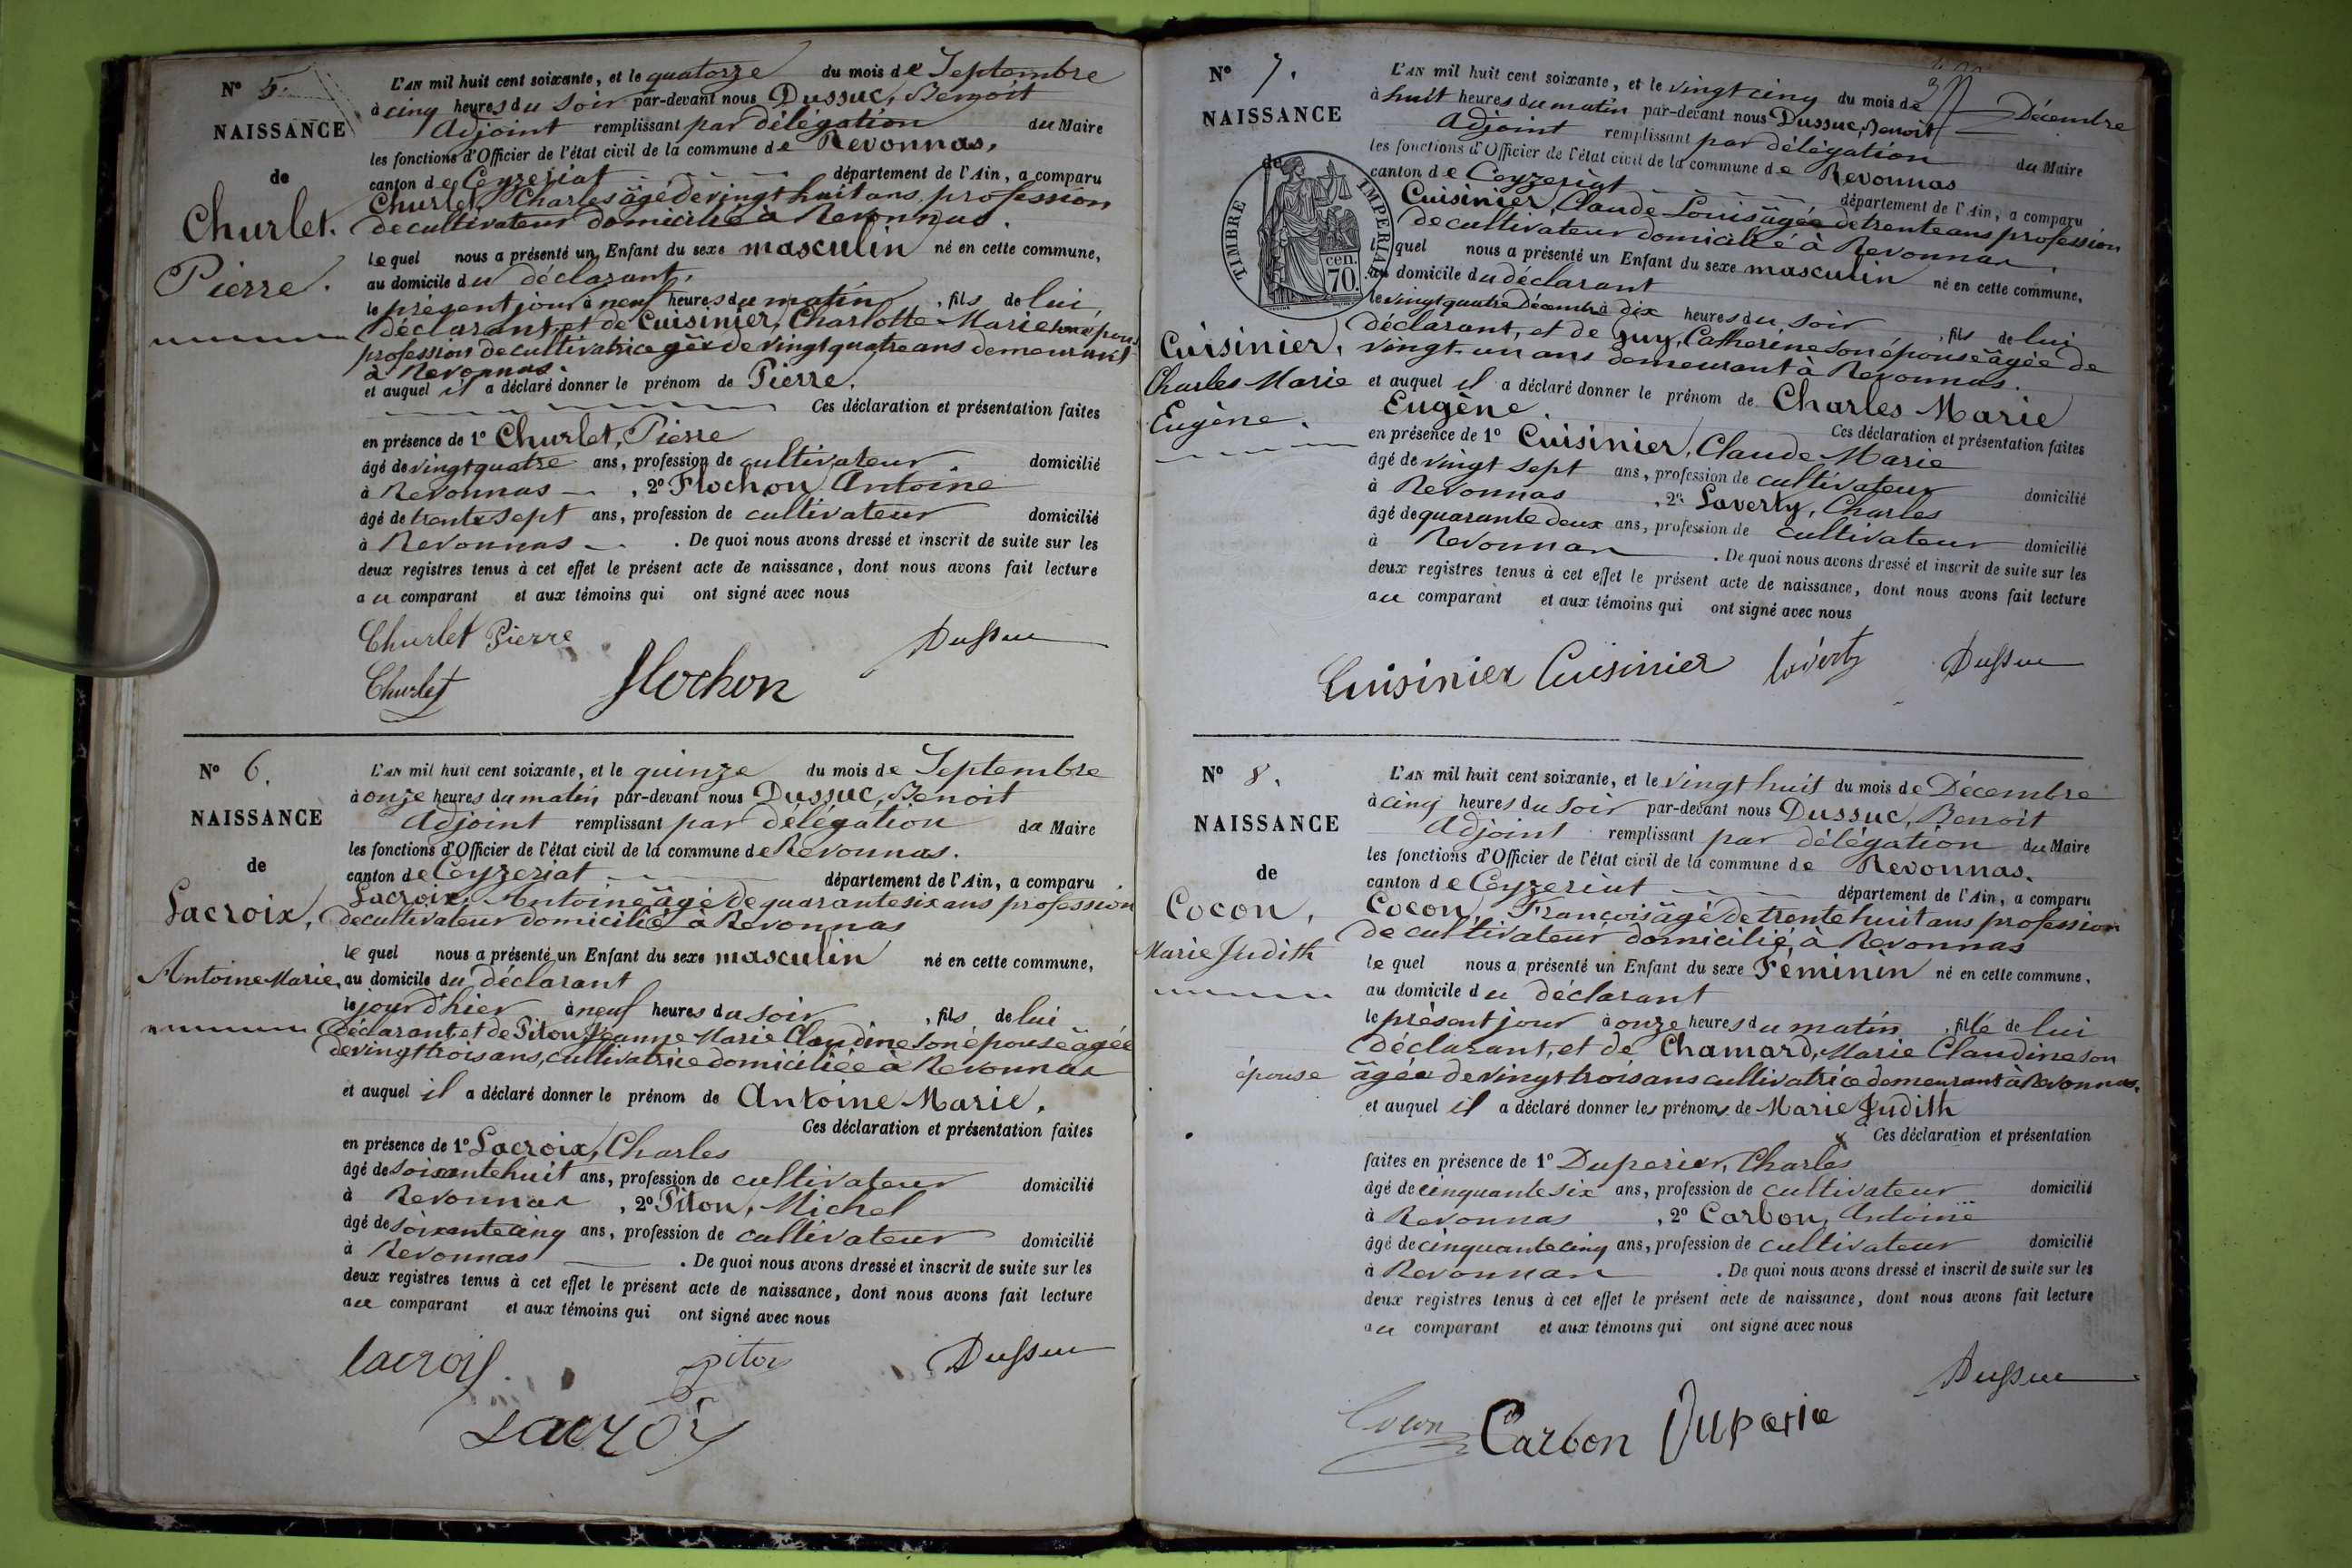 N° 5.
NAISSANCE
de
Churlet.
Pierre.
L'AN mil huit cent soixante, et le quatorze du mois de Septembre
à cinq heures du soir par-devant nous Dussuc, Benoit
Adjoint remplissant par délégation du Maire
les fonctions d'Officier de l'état civil de la commune de Revonnas,
canton de Ceyzeriat département de l'Ain, a comparu
Churlet, Charles âgé de vingt huit ans, profession
de cultivateur domicilié à Revonnas.
lequel nous a présenté un Enfant du sexe masculin né en cette commune,
au domicile du déclarant,
le présent jour à neuf heures du matin, fils de lui
déclarant, et de Cuisinier, Charlotte Marie son épouse
profession de cultivatrice âgée de vingt quatre ans demeurant
à Revonnas.
et auquel il a déclaré donner le prénom de Pierre.
Ces déclaration et présentation faites
en présence de 1° Churlet, Pierre
âgé de vingt quatre ans, profession de cultivateur domicilié
à Revonnas, 2° Flochon Antoine
âgé de trente sept ans, profession de cultivateur domicilié
à Revonnas. De quoi nous avons dressé et inscrit de suite sur les
deux registres tenus à cet effet le présent acte de naissance, dont nous avons fait lecture
au comparant et aux témoins qui ont signé avec nous
Churlet Pierre
Dussuc
Churlet
flochon
N° 6.
NAISSANCE
de
Lacroix,
Antoine Marie,
L'AN mil huit cent soixante, et le quinze du mois de Septembre
à onze heures du matin par-devant nous Dussuc, Benoit
Adjoint remplissant par délégation du Maire
les fonctions d'Officier de l'état civil de la commune de Revonnas.
canton de Ceyzeriat département de l'Ain, a comparu
Lacroix, Antoine âgé de quarante six ans profession
de cultivateur domicilié à Revonnas
lequel nous a présenté un Enfant du sexe masculin né en cette commune,
au domicile du déclarant
le jour d'hier à neuf heures du soir, fils de lui
déclarant et de Piton Jeanne Marie Claudine son épouse âgée
de vingt trois ans, cultivatrice domiciliée à Revonnas
et auquel il a déclaré donner le prénom de Antoine Marie.
Ces déclaration et présentation faites
en présence de 1° Lacroix, Charles
âgé de soixante huit ans, profession de cultivateur domicilié
à Revonnas, 2° Piton, Michel
âgé de soixante cinq ans, profession de cultivateur domicilié
à Revonnas. De quoi nous avons dressé et inscrit de suite sur les
deux registres tenus à cet effet le présent acte de naissance, dont nous avons fait lecture
au comparant et aux témoins qui ont signé avec nous
lacroix piton Dussuc
Lacroix
N° 7.
NAISSANCE
de
TIMBRE IMPERIAL
70. cen.
Cuisinier,
Charles Marie
Eugène.
L'AN mil huit cent soixante, et le vingt cinq du mois de Décembre
à huit heures du matin par-devant nous Dussuc, Benoit
Adjoint remplissant par délégation du Maire
les fonctions d'Officier de l'état civil de la commune de Revonnas
canton de Ceyzeriat département de l'Ain, a comparu
Cuisinier, Claude Louis âgée de trente ans profession
de cultivateur domicilié à Revonnas.
lequel nous a présenté un Enfant du sexe masculin né en cette commune,
au domicile du déclarant
le vingt quatre Décembre à dix heures du soir, fils de lui
déclarant, et de Guy, Catherine son épouse âgée de
vingt-un ans demeurant à Revonnas.
et auquel il a déclaré donner le prénom de Charles Marie
Eugène.
Ces déclaration et présentation faites
en présence de 1° Cuisinier, Claude Marie
âgé de vingt sept ans, profession de cultivateur domicilié
à Revonnas, 2° Laverty, Charles
âgé de quarante deux ans, profession de cultivateur domicilié
à Revonnas. De quoi nous avons dressé et inscrit de suite sur les
deux registres tenus à cet effet le présent acte de naissance, dont nous avons fait lecture
au comparant et aux témoins qui ont signé avec nous
Cuisinier Cuisinier laverty Dussuc
N° 8.
NAISSANCE
de
Cocon,
Marie Judith
L'AN mil huit cent soixante, et le vingt huit du mois de Décembre
à cinq heures du soir par-devant nous Dussuc, Benoit
Adjoint remplissant par délégation du Maire
les fonctions d'Officier de l'état civil de la commune de Revonnas.
canton de Ceyzeriat département de l'Ain, a comparu
Cocon, François âgé de trente huit ans profession
de cultivateur domicilié, à Revonnas
lequel nous a présenté un Enfant du sexe Féminin né en cette commune,
au domicile du déclarant
le présent jour à onze heures du matin, fille de lui
déclarant, et de Chamard, Marie Claudine son
épouse âgée de vingt trois ans cultivatrice demeurant à Revonnas.
et auquel il a déclaré donner les prénoms de Marie Judith
Ces déclaration et présentation
faites en présence de 1° Duperier, Charles
âgé de cinquante six ans, profession de cultivateur domicilié
à Revonnas, 2° Carbon, Antoine
âgé de cinquante cinq ans, profession de cultivateur domicilié
à Revonnas. De quoi nous avons dressé et inscrit de suite sur les
deux registres tenus à cet effet le présent acte de naissance, dont nous avons fait lecture
au comparant et aux témoins qui ont signé avec nous
Dussuc
Cocon Carbon Duperie